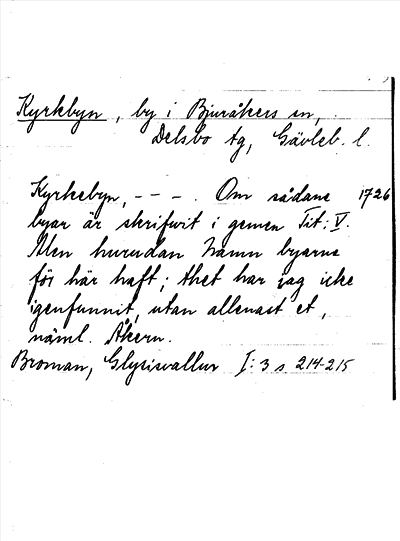 Kyrkbyn, by i Bjuråkers sn,
Delsbo tg, Gävleb. l.
Kyrkebyn, - - - . Om sådane 1726
byar är skrifwit i gemen Tit: V.
Men hurudan namn byarne
för här haft; thet har jag icke
igenfunnit, utan allenast et,
näml. Åkern.
Broman, Glysisvallur I: 3 s 214-215